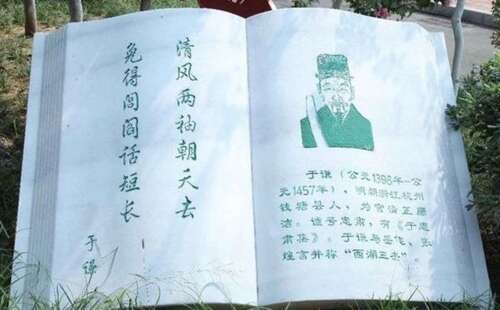 清风两袖朝天去
免得闾阎话短长
于谦
于谦（公元1398年-公
元1457年），明朝浙江杭州
钱塘县人，为官清正廉
洁。谥号忠肃，有《于忠
肃集》。于谦与岳飞、张
煌言并称“西湖三杰”。